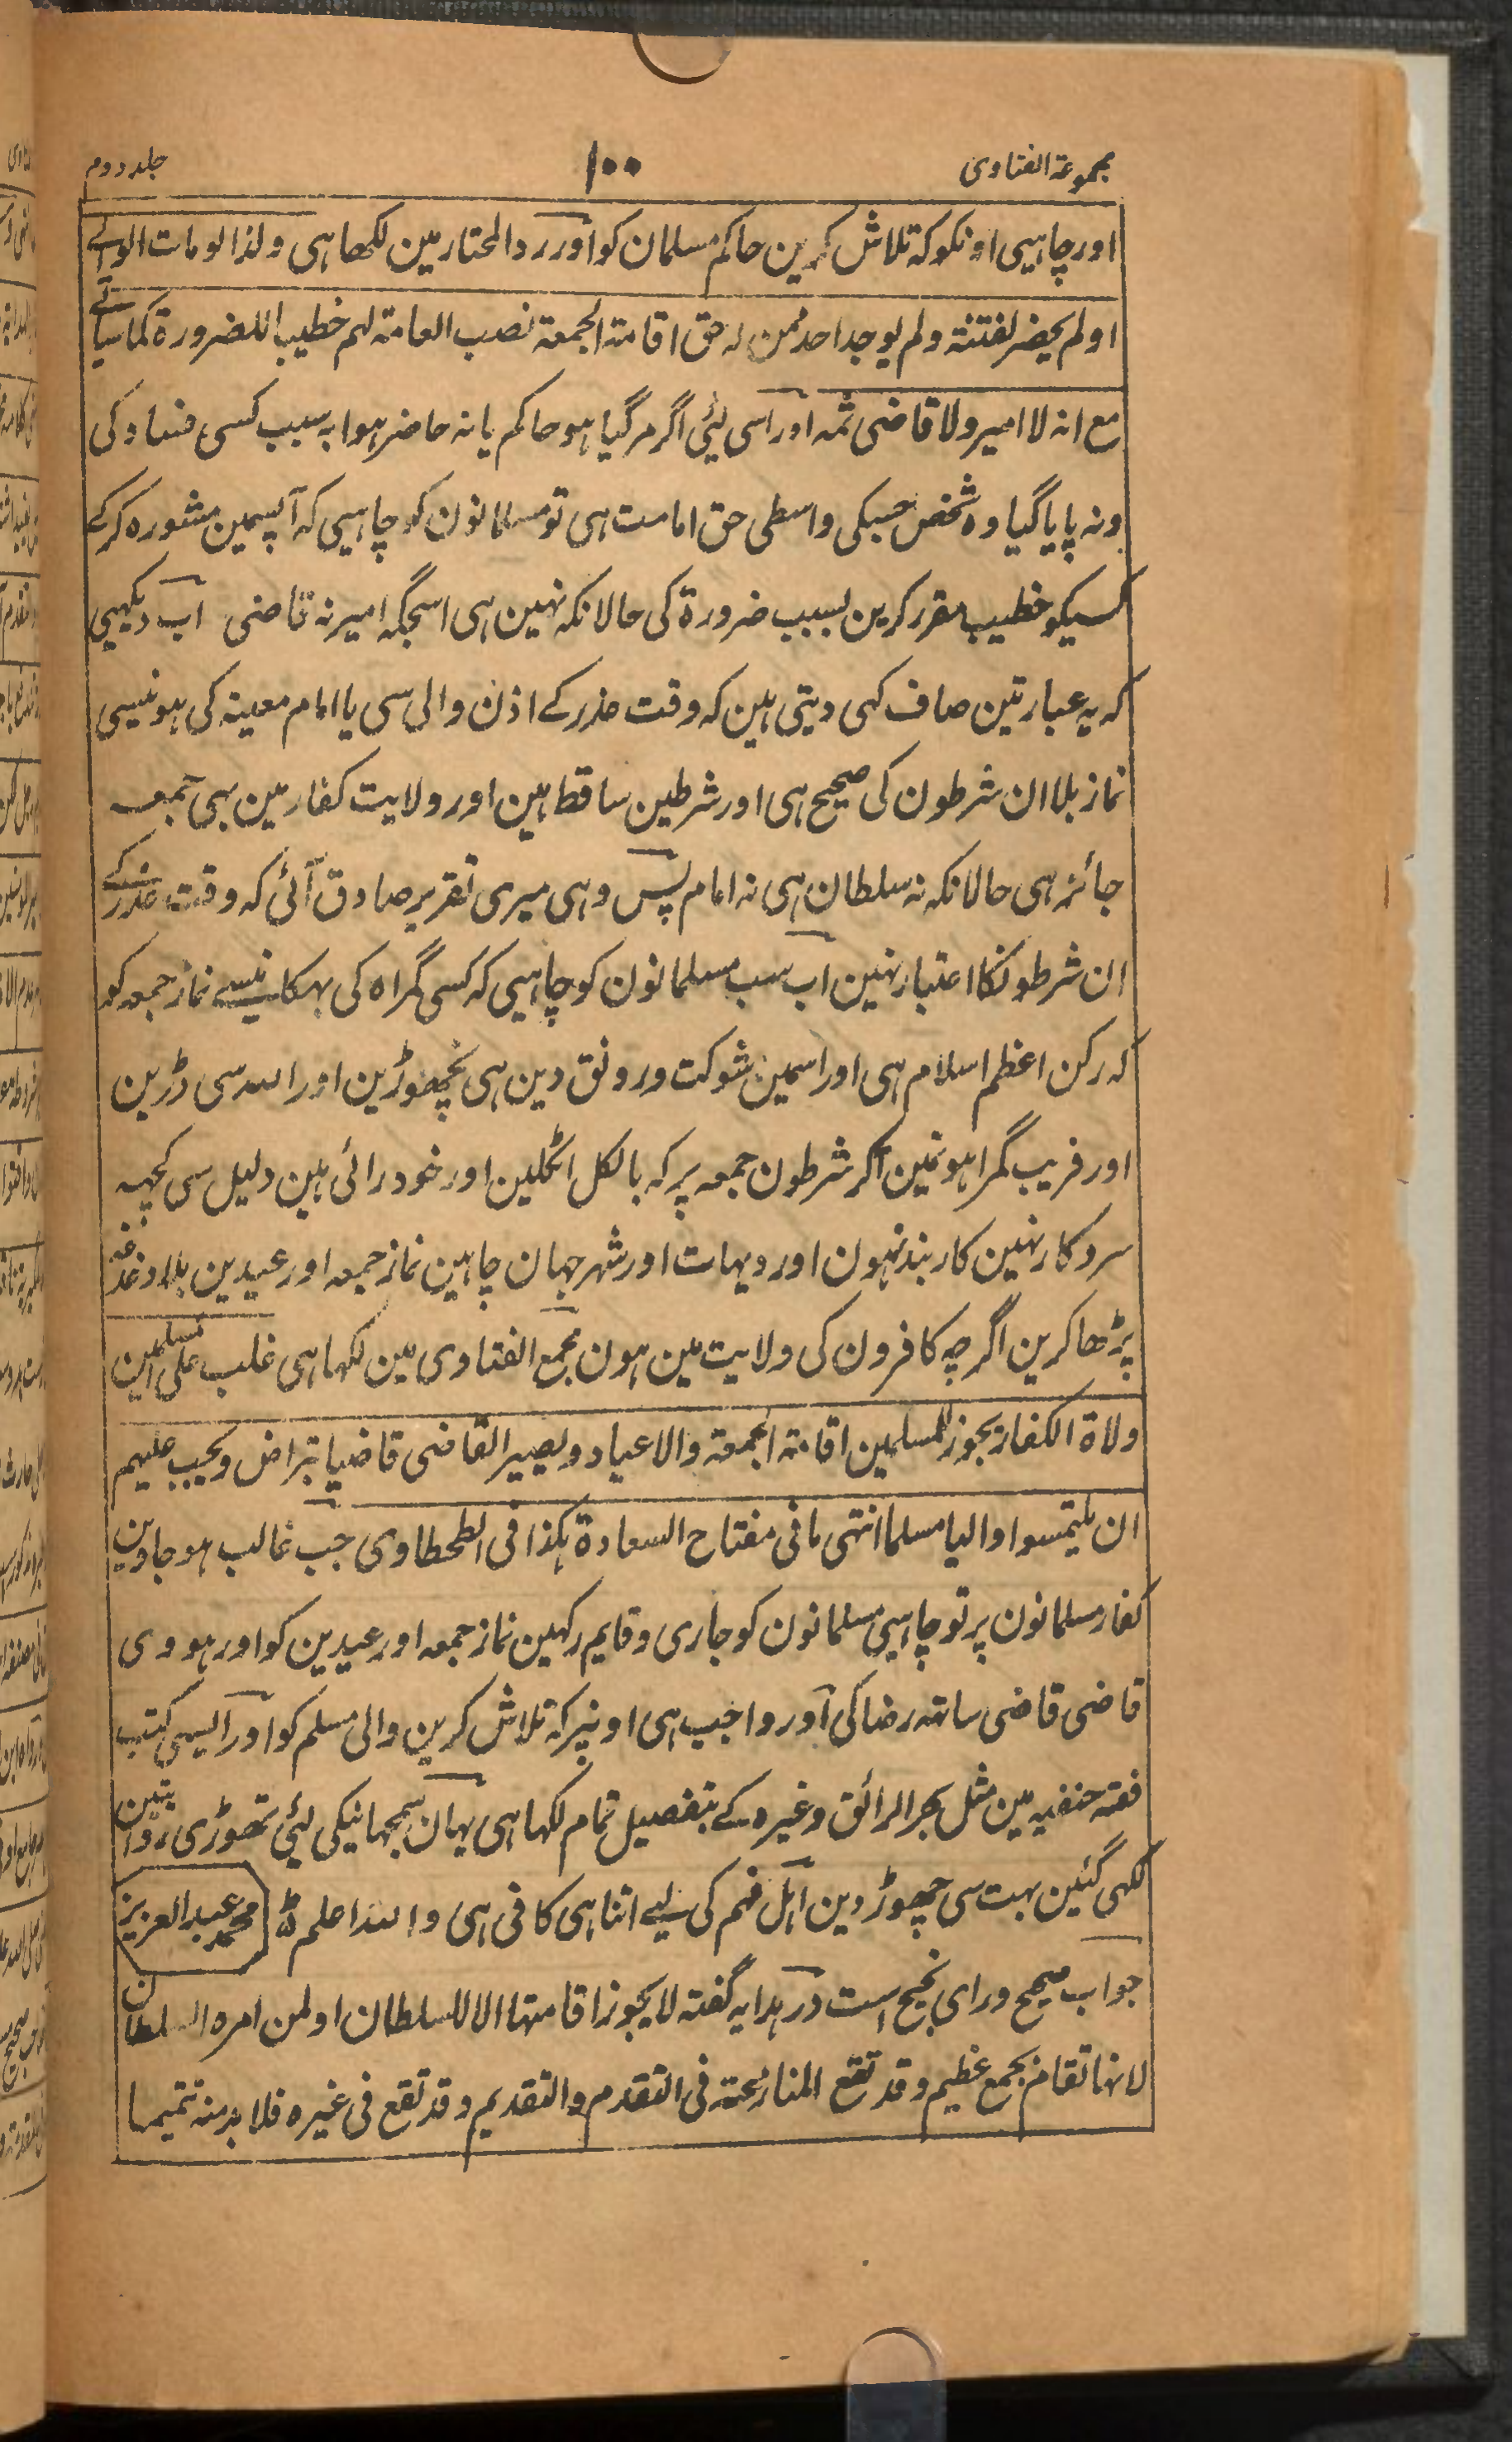 مجموعة الفتاوی ۱۰۰ جلد دوم
اور چاہیی اونکو کہ تلاش کرین حاکم مسلمان کو اور رد المحتار مین لکھا ہی ولذا لو مات الوالے
او لم یحضر لفتنة ولم یوجد احد ممن لہ حق اقامة الجمعة نصب العامة لہم خطیبا للضرورة کما سیاتے
مع انہ لا امیر ولا قاضی ثمہ اور اسی لیئی اگر مر گیا ہو حاکم یا نہ حاضر ہوا بہ سبب کسی فساد کی
ونہ پایا گیا وہ شخص جسکی واسطی حق امامت ہی تو مسلمانون کو چاہیی کہ آپسمین مشورہ کرکے
کسیکو خطیب مقرر کرین بسبب ضرورة کی حالانکہ نہین ہی اسجگہ امیر نہ قاضی اب دیکھیی
کہ یہ عبارتین صاف کہی دیتی ہین کہ وقت عذر کے اذن والی سی یا امام معینہ کی ہونیسی
نماز بلا ان شرطون کی صحیح ہی اور شرطین ساقط ہین اور ولایت کفار مین بہی جمعہ
جائز ہی حالانکہ نہ سلطان ہی نہ امام پس وہی میری تقریر صادق آئی کہ وقت عذر کے
ان شرطونکا اعتبار نہین اب سب مسلمانون کو چاہیی کہ کسی گمراہ کی بہکانیسے نماز جمعہ کو
کہ رکن اعظم اسلام ہی اور اسمین شوکت و رونق دین ہی نچھوڑین اور اللہ سی ڈرین
اور فریب گمراہونمین آکر شرطون جمعہ پر کہ بالکل اٹکلین اور خود رائی ہین دلیل سی کچہہ
سروکار نہین کاربند نہون اور دیہات اور شہر جہان چاہین نماز جمعہ اور عیدین بلا دغدغہ
پڑھا کرین اگرچہ کافرون کی ولایت مین ہون مجمع الفتاوی مین لکہا ہی غلب علی المسلمین
ولاة الکفار یجوز للمسلمین اقامة الجمعة والاعیاد ویصیر القاضی قاضیا بتراض ویجب علیہم
ان یلتمسوا والیا مسلما انتہی ما فی مفتاح السعادة ہکذا فی الطحطاوی جب غالب ہو جاوین
کفار مسلمانون پر تو چاہیی مسلمانون کو جاری و قایم رکہین نماز جمعہ اور عیدین کو اور ہووی
قاضی قاضی ساتہہ رضا کی اور واجب ہی اونپر کہ تلاش کرین والی مسلم کو اور ایسی کتب
فقہ حنفیہ مین مثل بحر الرائق وغیرہ کے بتفصیل تمام لکہا ہی یہان سمجہانیکی لیئی تھوڑی روایتین
لکہی گئین بہت سی چھوڑ دین اہل فہم کی لیے اتنا ہی کافی ہی واللہ اعلم محمد عبد العزیز
جواب صحیح ورای نجیح است در ہدایہ گفتہ لا یجوز اقامتہا الا للسلطان او لمن امرہ السلطان
لانہا تقام بجمع عظیم وقد تقع المنازعة فی التقدم والتقدیم وقد تقع فی غیرہ فلا بد منہ تتمیما